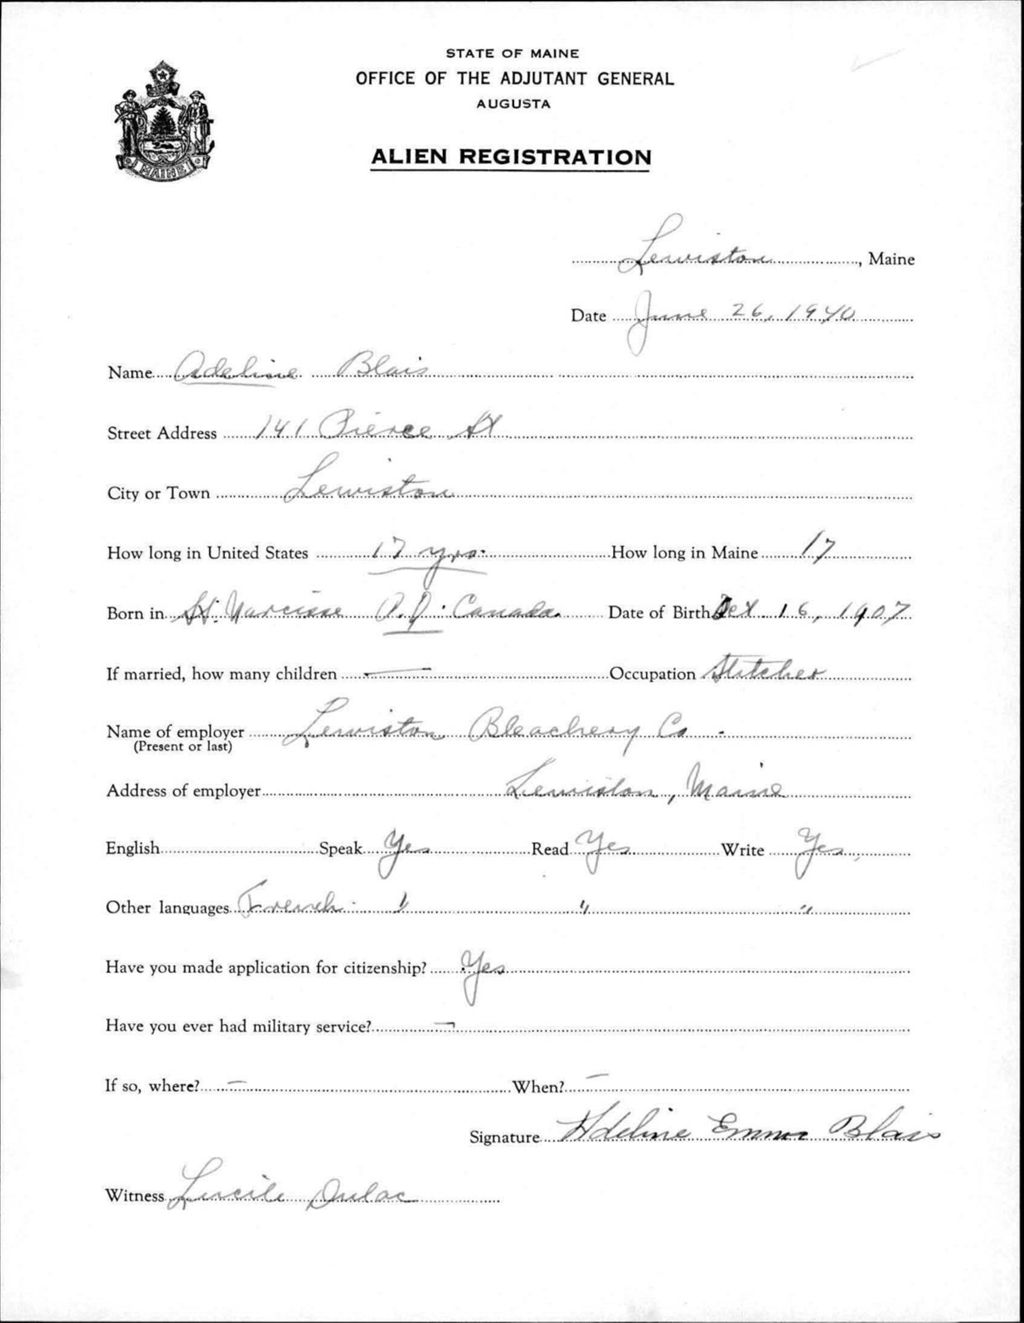 STATE OF MAINE
OFFICE OF THE ADJUTANT GENERAL
AUGUSTA
ALIEN REGISTRATION
MAINE
Lewiston, Maine
Date June 26, 1940
Name Adeline Blais
Street Address 141 Pierce St
City or Town Lewiston
How long in United States 17 yrs. How long in Maine 17
Born in St. Narcisse P.Q. Canada. Date of Birth Oct 16, 1907
If married, how many children — Occupation Stitcher
Name of employer Lewiston Bleachery Co.
(Present or last)
Address of employer Lewiston, Maine
English Speak Yes Read Yes Write Yes
Other languages French " " "
Have you made application for citizenship? Yes
Have you ever had military service? —
If so, where? — When? —
Signature Adeline Emma Blais
Witness Lucile Dulac